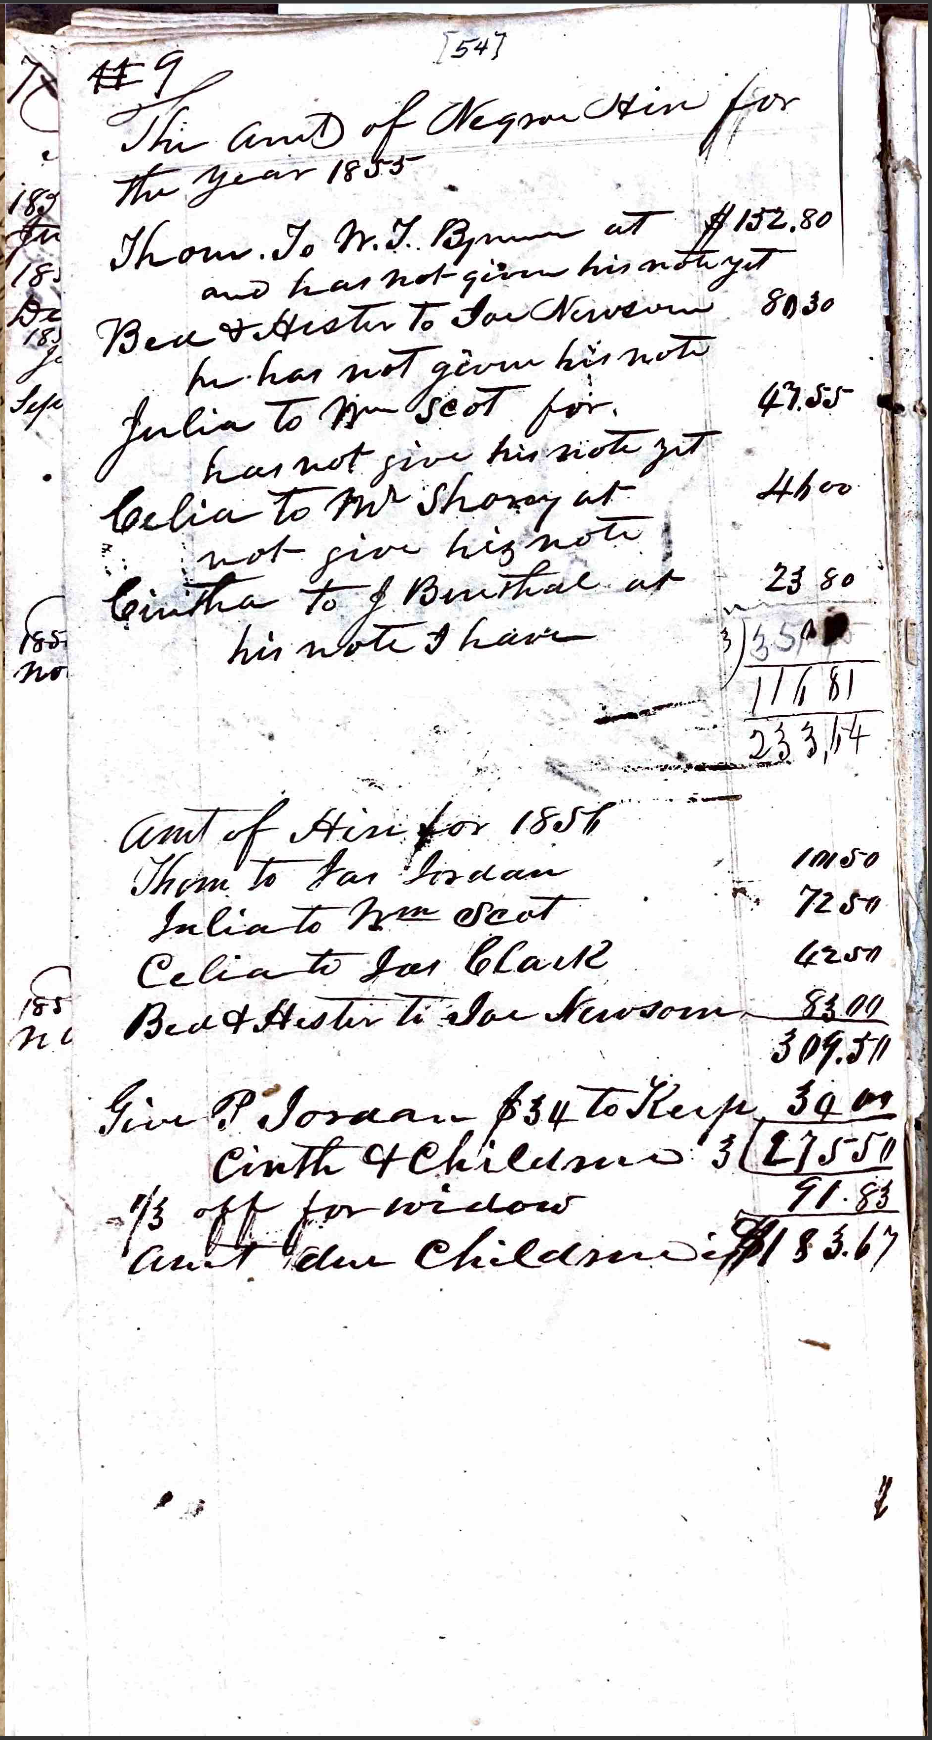 [54]
#9
The Amt of Negroe Hire for
the year 1855
Thom. To W. T. Bynum at $152.80
and has not given his note yet
Bed & Hester to Joe Newsom 80 30
he has not given his note
Julia to Wm Scot for. 47.55
has not give his note yet
Celia to Mr at 46 00
not give his note
Cintha to J Benthal at 23 80
his note I have 3)350
116 81
233,64
Amt of Hire for 1856
Thom to Jas Jordan 111 50
Julia to Wm Scot 72 50
Celia to Jas Clark 42 50
Bed & Hester to Joe Newsom 83 00
309.50
Give P Jordan $34 to Keep 34 00
Cinth & Children 3(275 50
1/3 off for widow 91.83
Amt due Children is $183.67